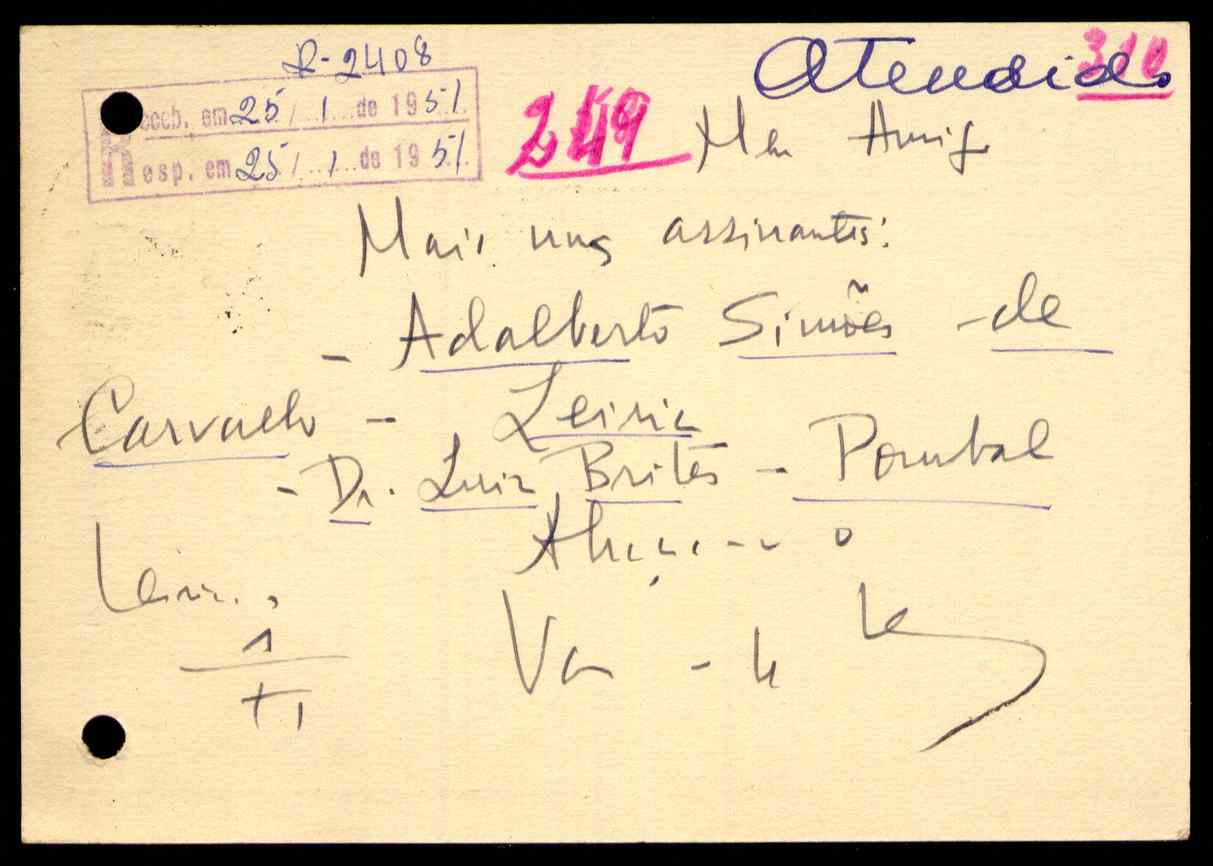 R-2408
Atendido
310
Receb. em 25/1 de 1951
Resp. em 25/1 de 1951
Meu Amigo
Mais uns assinantes:
- Adalberto Simões de
Carvalho - Leiria
- Dr. Luiz Brites - Pombal
Leiria